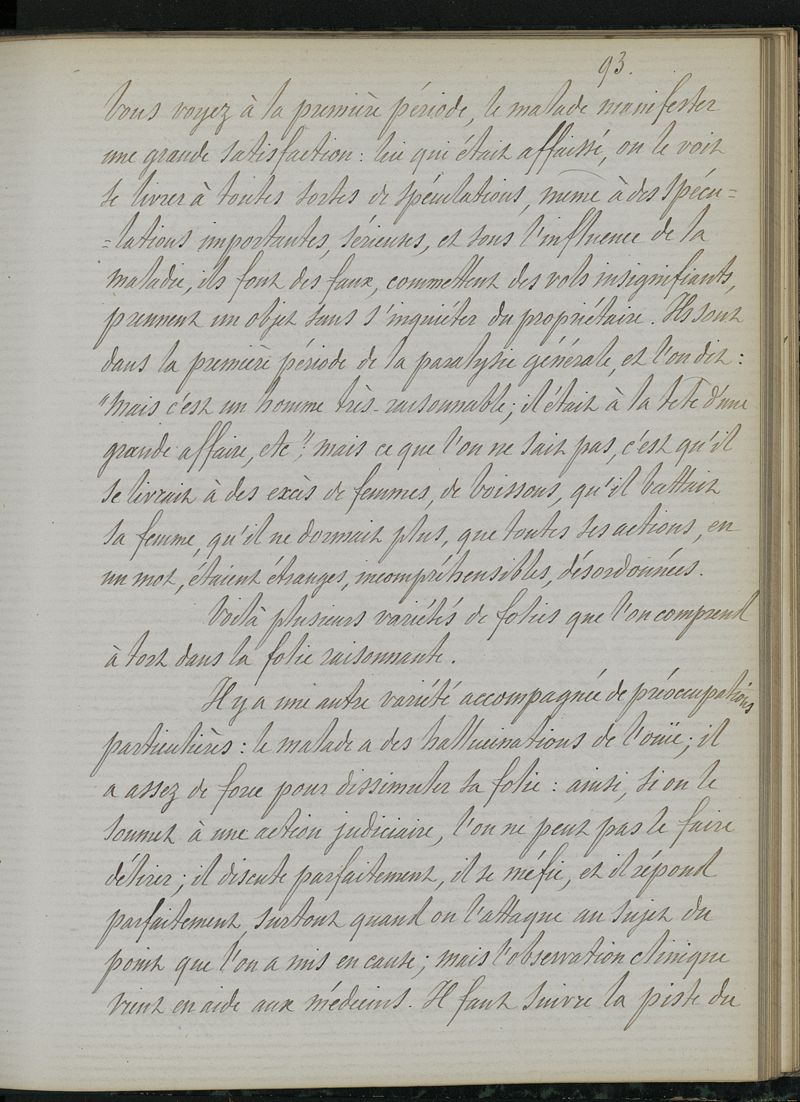 93.
Vous voyez à la première période, le malade manifester
une grande satisfaction : lui qui était affaissé, on le voit
se livrer à toutes sortes de spéculations, même à des spécu=
=lations importantes, sérieuses, et sous l'influence de la
maladie, ils font des faux, commettent des vols insignifiants,
prennent un objet sans s'inquiéter du propriétaire. Ils sont
dans la première période de la paralysie générale, et l'on dit :
"Mais c'est un homme très-raisonnable ; il était à la tête d'une
grande affaire, etc", mais ce que l'on ne sait pas, c'est qu'il
se livrait à des excès de femmes, de boissons, qu'il battait
sa femme, qu'il ne dormait plus, que toutes ses actions, en
un mot, étaient étranges, incompréhensibles, désordonnées.
Voilà plusieurs variétés de folies que l'on comprend
à tort dans la folie raisonnante.
Il y a une autre variété accompagnée de préoccupations
particulières : le malade a des hallucinations de l'ouïe ; il
a assez de force pour dissimuler sa folie : ainsi, si on le
soumet à une action judiciaire, l'on ne peut pas le faire
délirer ; il discute parfaitement, il se méfie, et il répond
parfaitement, surtout quand on l'attaque au sujet du
point que l'on a mis en cause ; mais l'observation clinique
vient en aide aux médecins. Il faut suivre la piste du